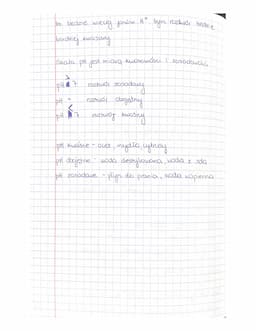 to będzie więcej jonów H⁺, tym roztwór będzie
bardziej kwaśny.
Skala pH jest miarą kwasowości i zasadowości
pH > 7 roztwór zasadowy
pH = roztwór obojętny
pH < 7 roztwór kwaśny
pH kwaśne - ocet, mydła
pH obojętne - woda destylowana, woda z
pH zasadowe - płyn do prania, woda wapienna